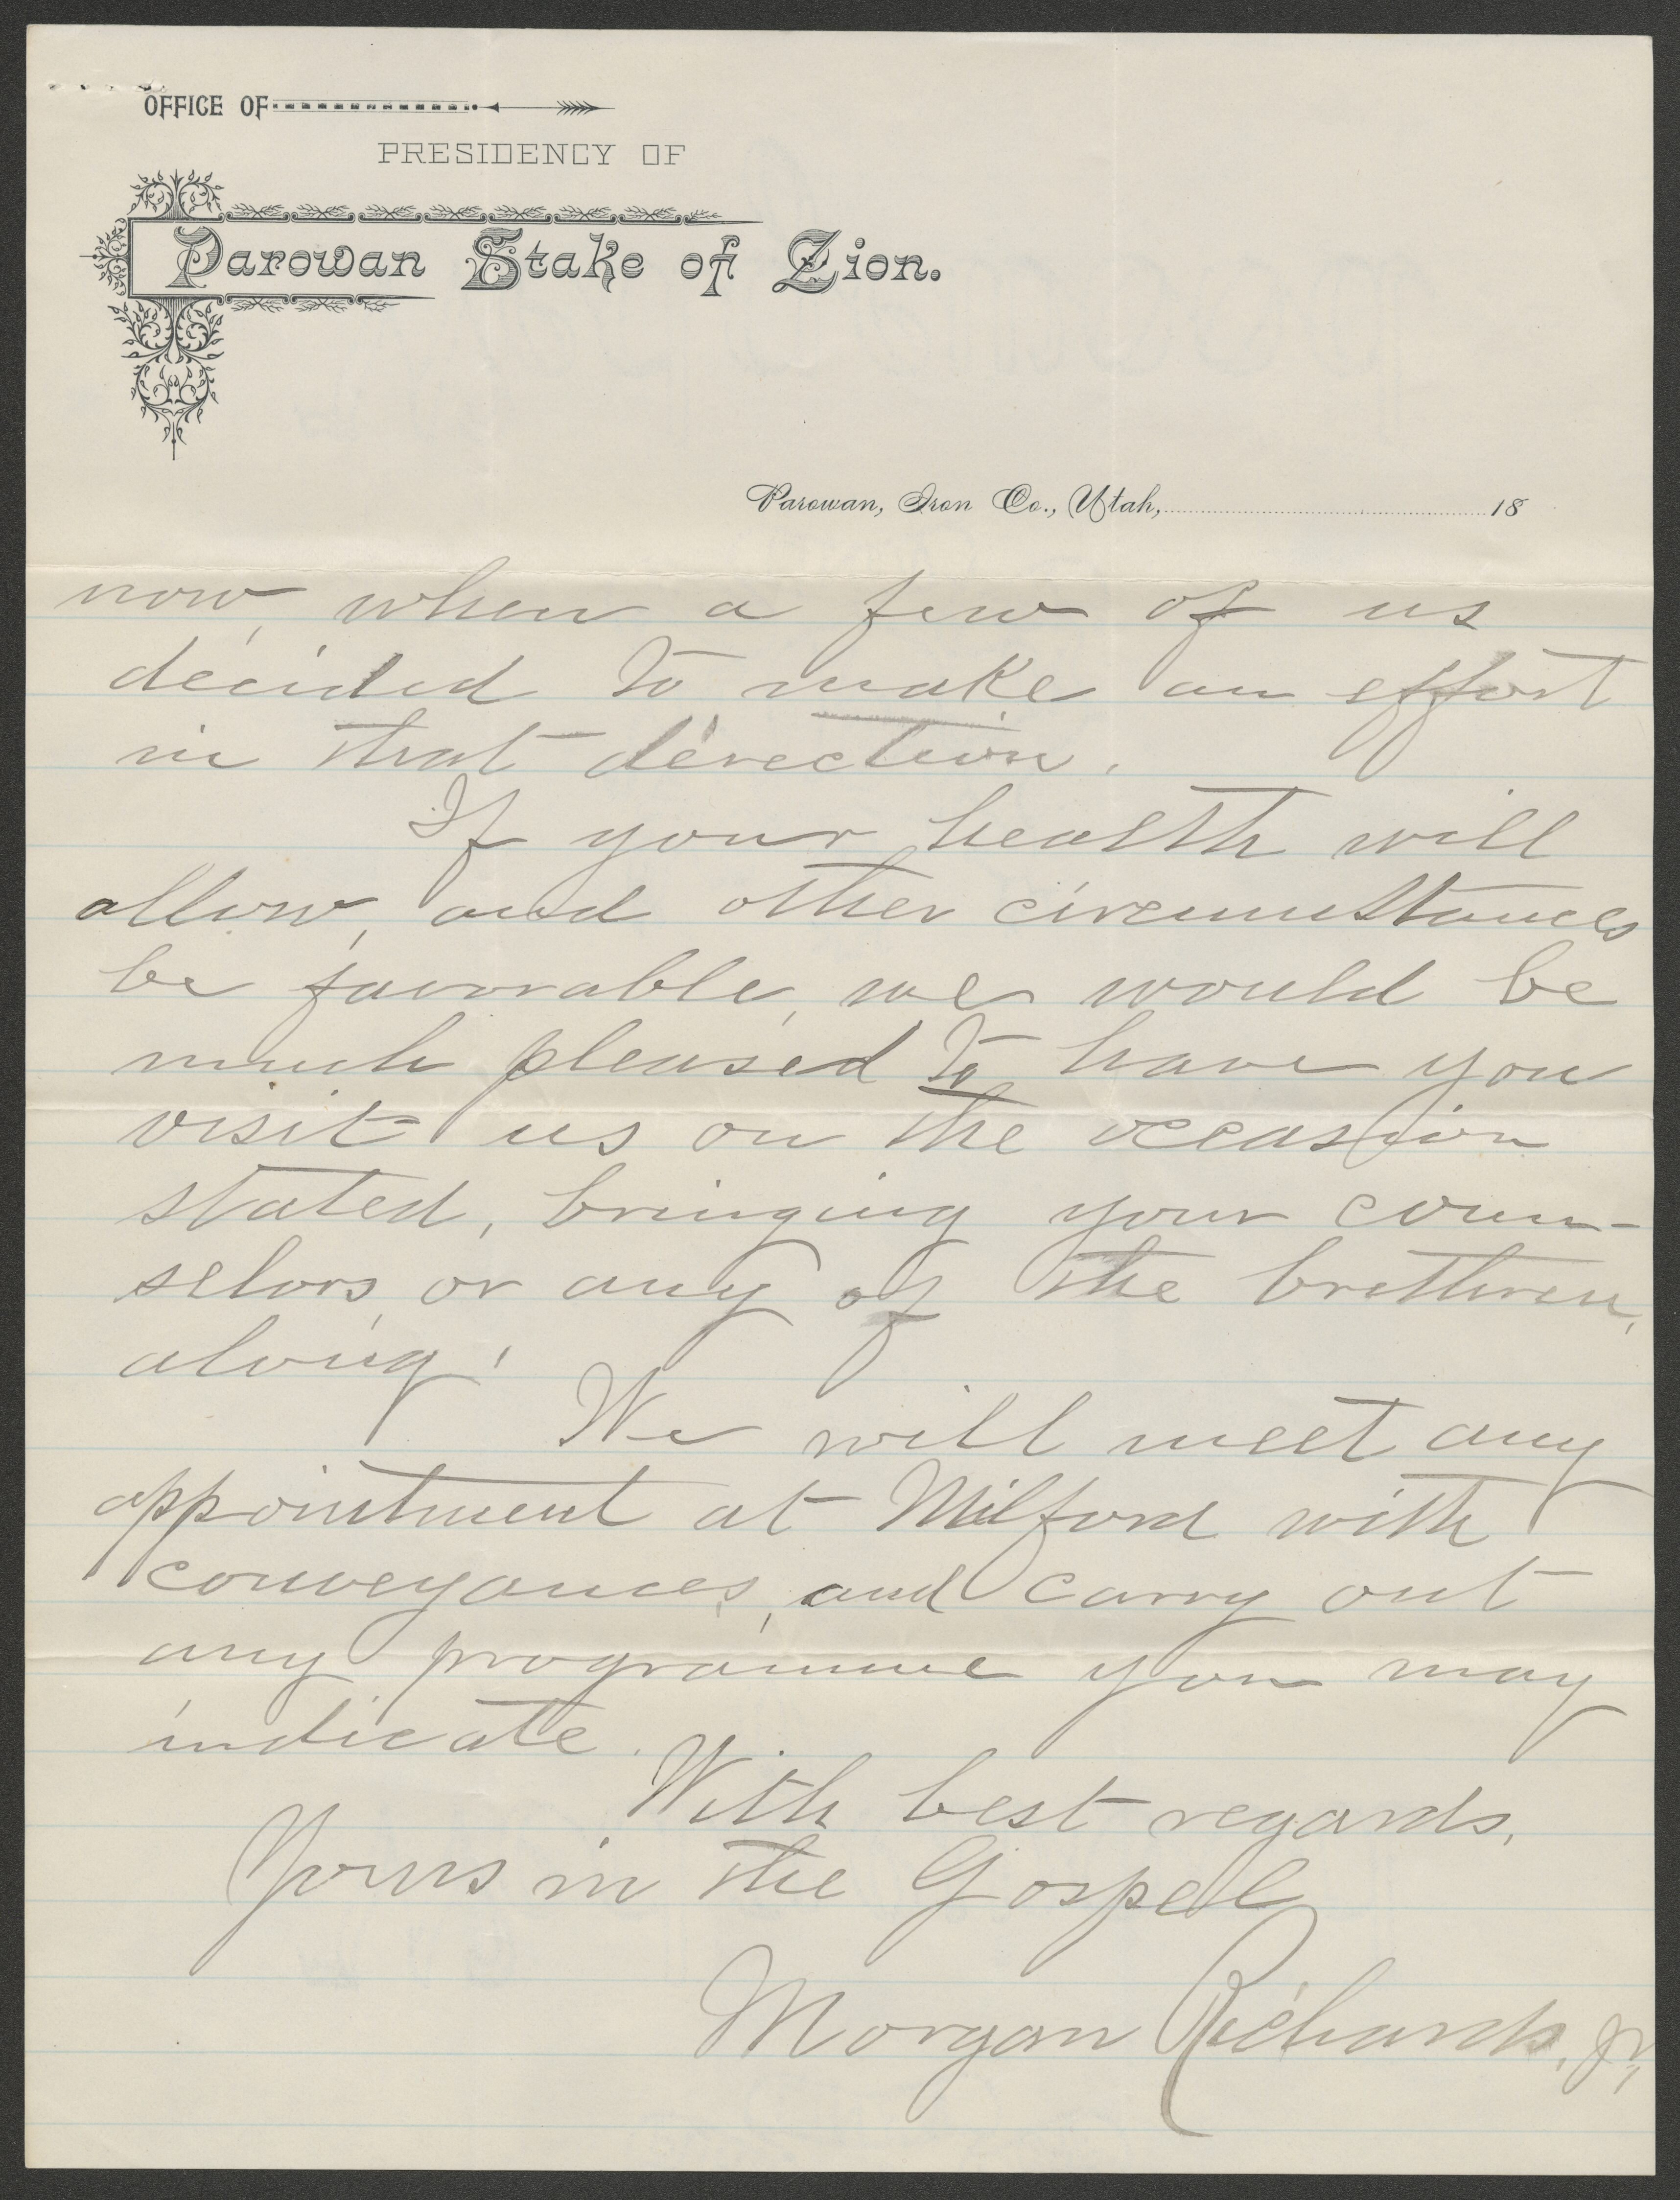 OFFICE OF
PRESIDENCY OF
Parowan Stake of Zion.
Parowan, Iron Co., Utah, 18
now, when a few of us
decided to make an effort
in that direction.
If your health will
allow, and other circumstances
be favorable, we would be
much pleased to have you
visit us on the occasion
stated, bringing your coun-
selors, or any of the brethren,
along.
We will meet any
appointment at Milford with
conveyances, and carry out
any programme you may
indicate.
With best regards,
Yours in the Gospel
Morgan Richards, Jr,